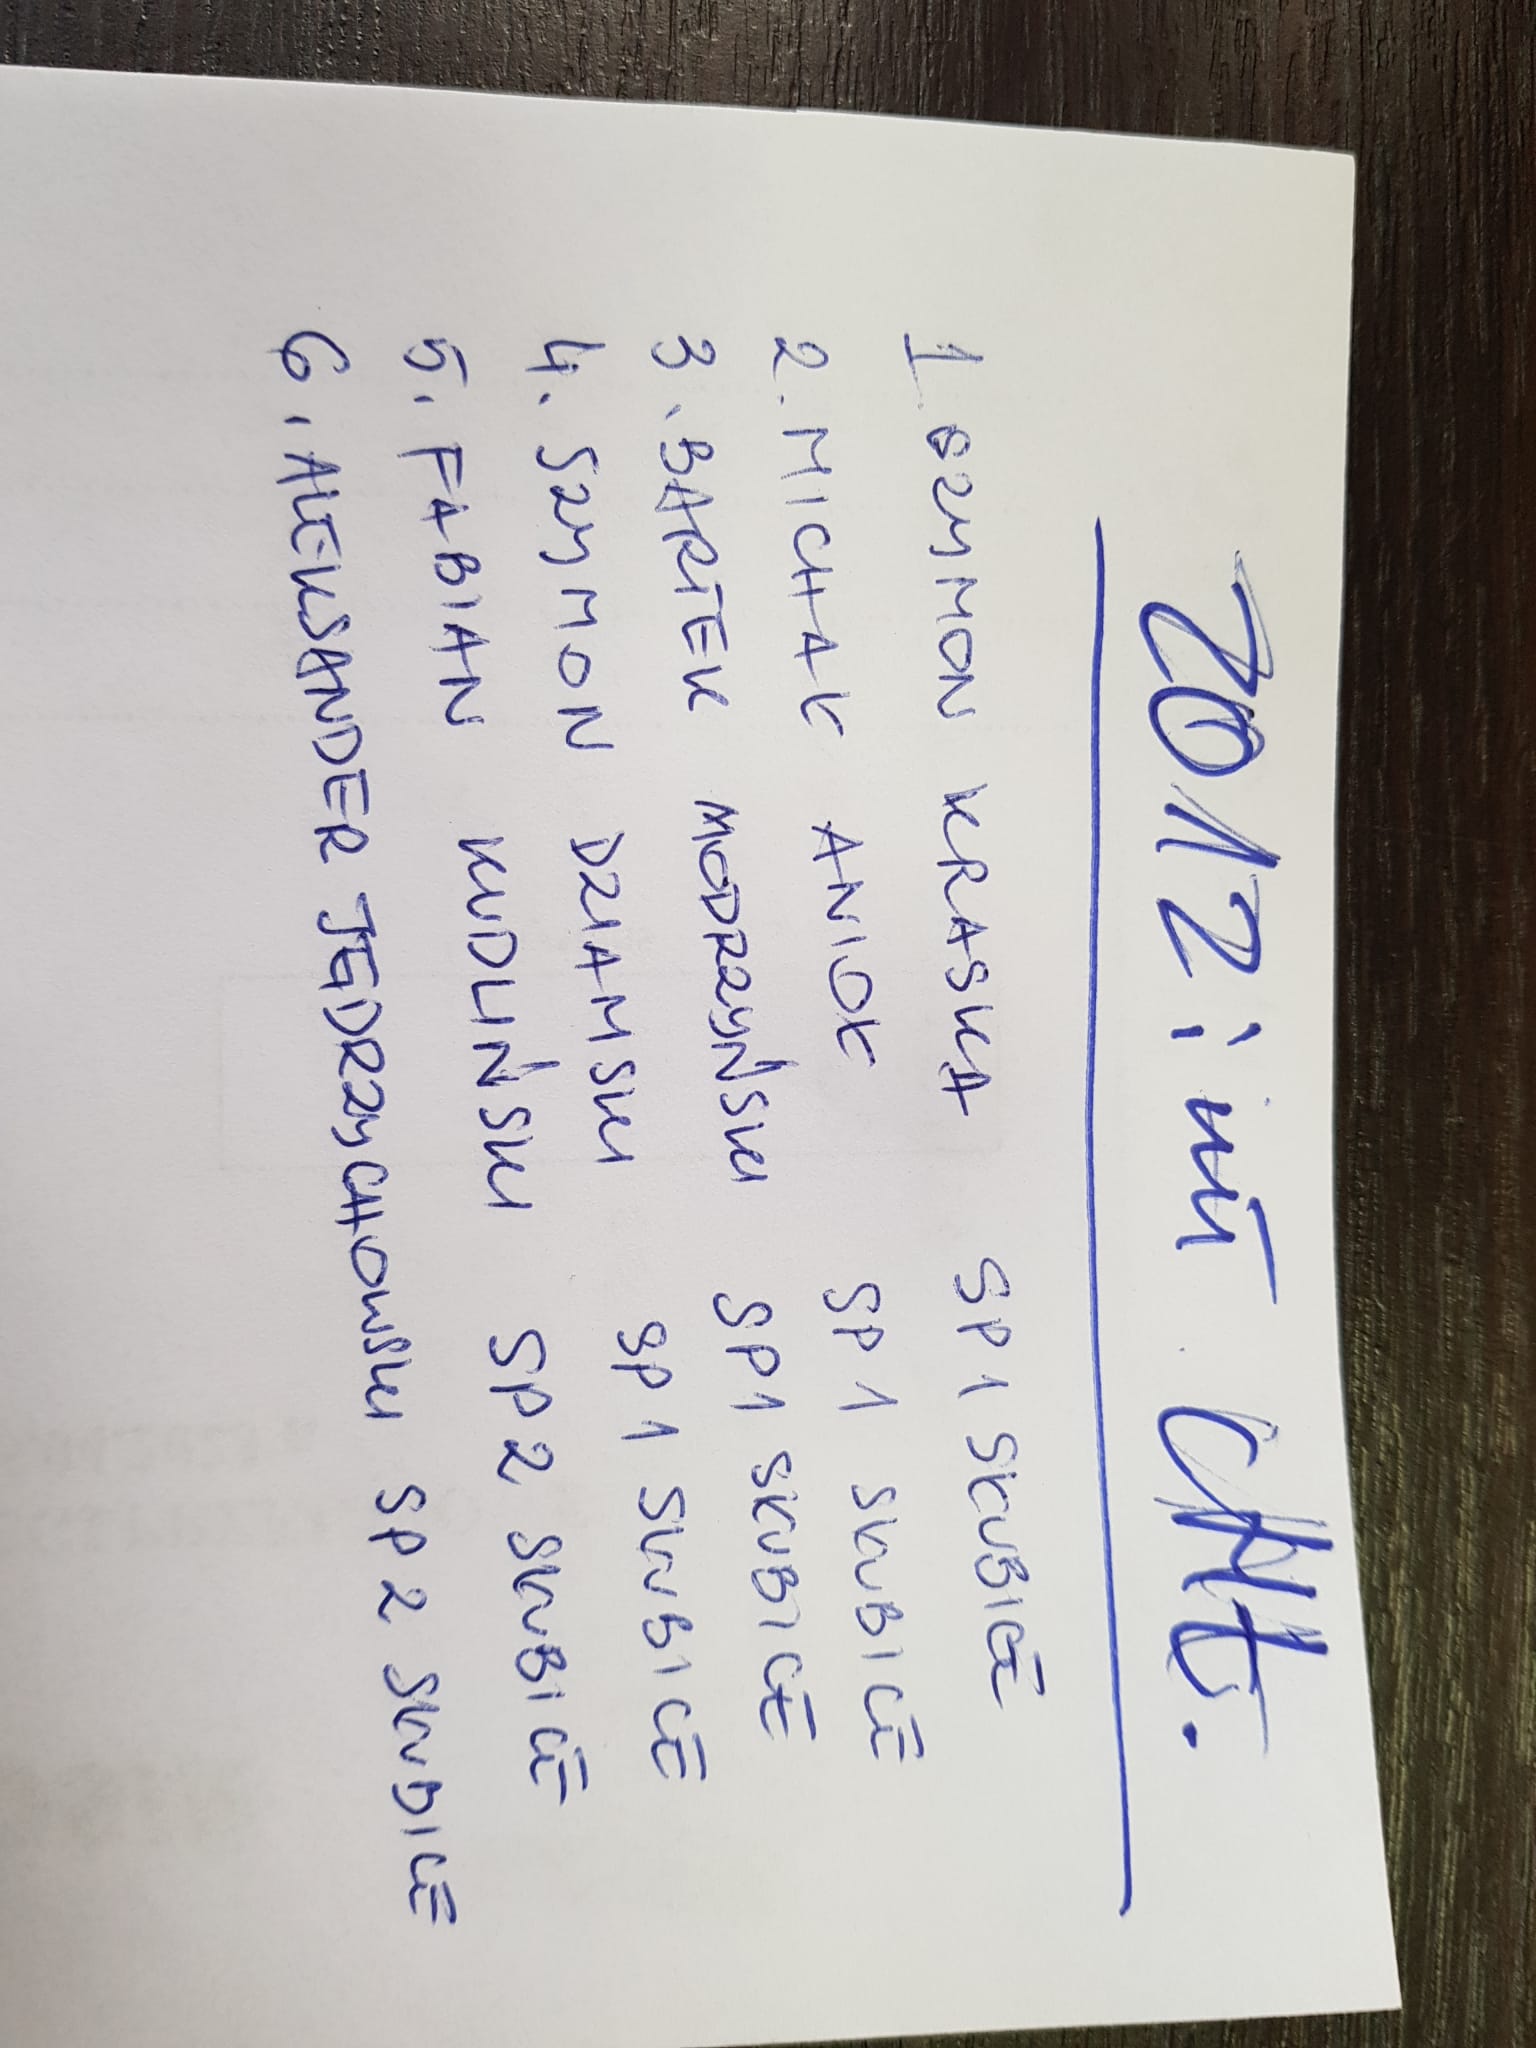 2012 i mł. CHŁ.
1. SZYMON KRASKA SP1 SŁUBICE
2. MICHAŁ ANIOŁ SP1 SŁUBICE
3. BARTEK MODRZYŃSKI SP1 SŁUBICE
4. SZYMON DZIAMSKI SP1 SŁUBICE
5. FABIAN KUDLIŃSKI SP2 SŁUBICE
6. ALEKSANDER JĘDRZYCHOWSKI SP2 SŁUBICE